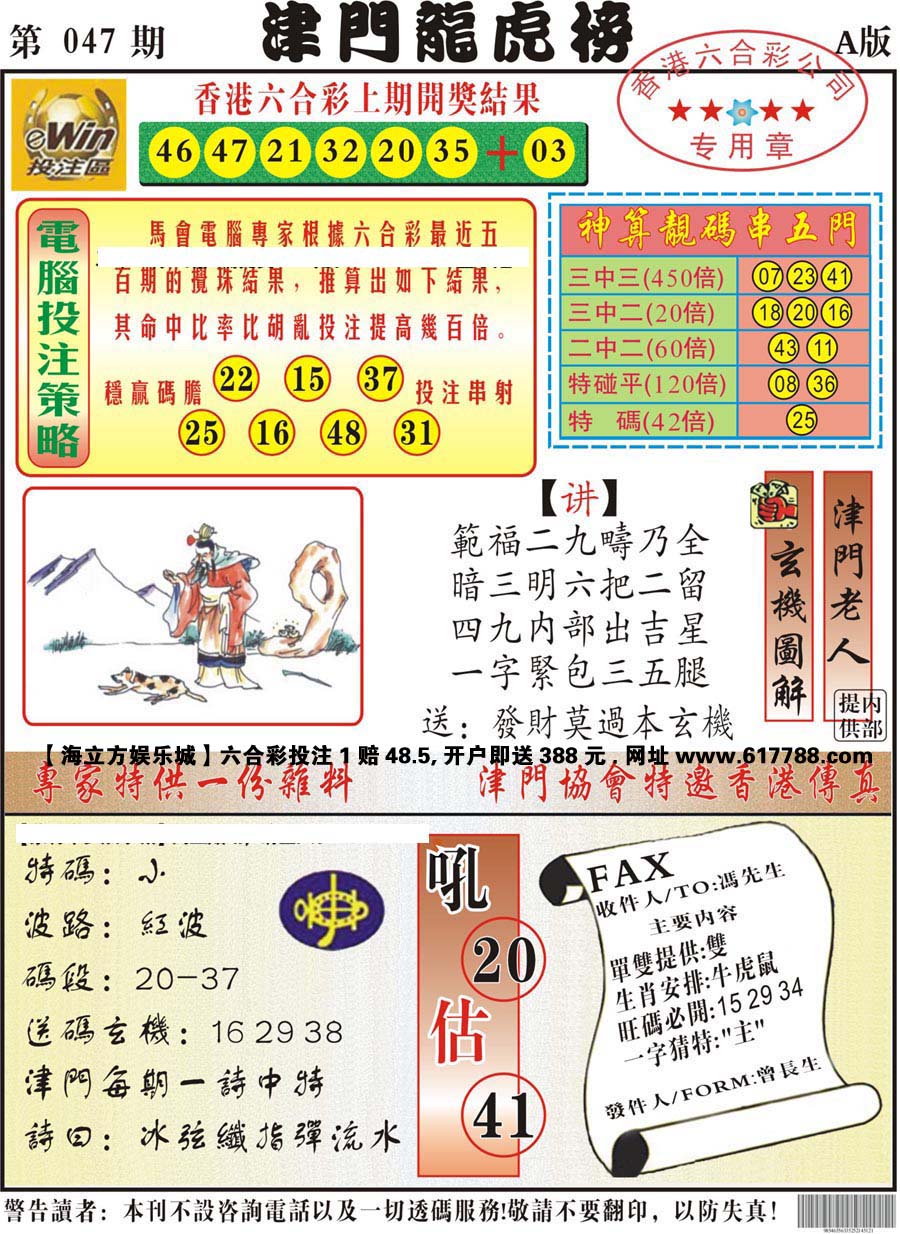 第 047 期
津門龍虎榜
A版
eWin
投注區
香港六合彩上期開獎結果
46 47 21 32 20 35 + 03
香港六合彩公司
专用章
電腦投注策略
馬會電腦專家根據六合彩最近五
百期的攪珠結果，推算出如下結果，
其命中比率比胡亂投注提高幾百倍。
穩贏碼膽 22 15 37 投注串射
25 16 48 31
神算靚碼串五門
三中三(450倍) 07 23 41
三中二(20倍) 18 20 16
二中二(60倍) 43 11
特碰平(120倍) 08 36
特 碼(42倍) 25
【讲】
範福二九疇乃全
暗三明六把二留
四九内部出吉星
一字緊包三五腿
送：發財莫過本玄機
玄機圖解
津門老人
内部提供
【海立方娱乐城】六合彩投注1赔48.5,开户即送388元,网址www.617788.com
專家特供一份雜料
津門協會特邀香港傳真
特碼：小
波路：紅波
碼段：20-37
送碼玄機：16 29 38
津門每期一詩中特
詩曰：冰弦纖指彈流水
吼
20
估
41
FAX
收件人/TO:馮先生
主要内容
單雙提供:雙
生肖安排:牛虎鼠
旺碼必開:15 29 34
一字猜特:"主"
發件人/FORM:曾長生
警告讀者：本刊不設咨詢電話以及一切透碼服務!敬請不要翻印，以防失真!